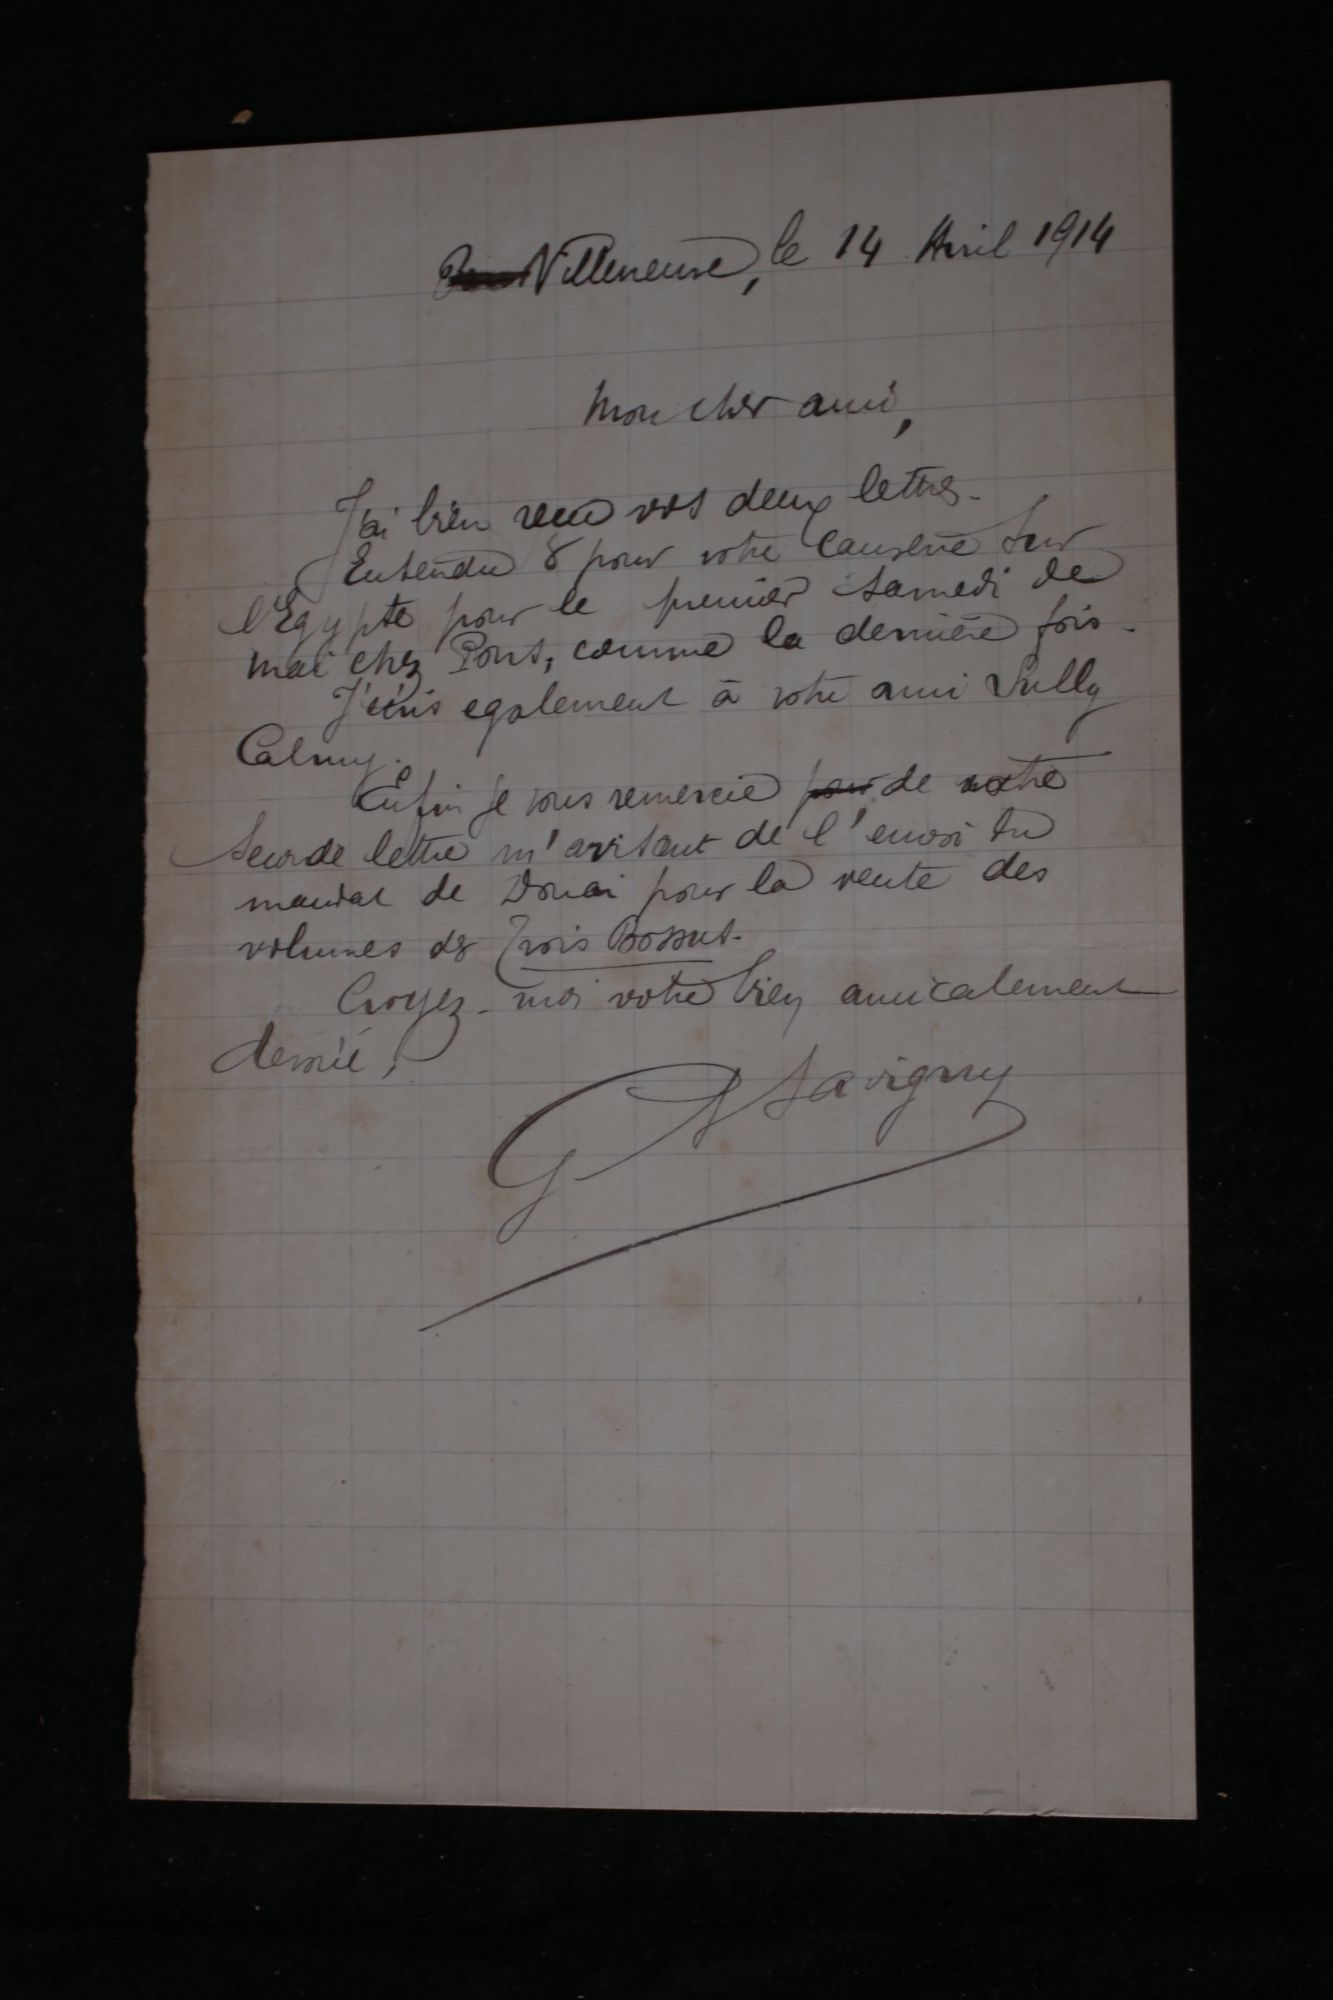 Villeneuve, le 14 Avril 1914
Mon cher ami,
J'ai bien recu vos deux lettres.
Entendu pour votre causerie sur
l'Egypte pour le premier samedi de
mai chez Pons, comme la dernière fois.
J'écris egalement à votre ami Sully
Calmy.
Enfin je vous remercie de votre
seconde lettre m'avisant de l'envoi du
mandat de Douai pour la vente des
volumes des Trois Bossus.
Croyez-moi votre bien amicalement
devoué,
G Savigny